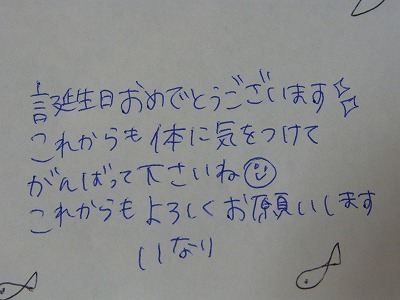 誕生日おめでとうございます☆☆
これからも体に気をつけて
がんばって下さいね☺
これからもよろしくお願いします
いなり